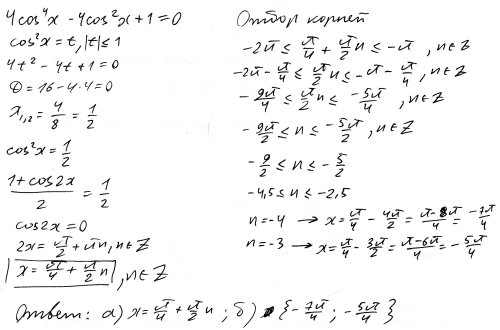 4cos⁴x - 4cos²x + 1 = 0
cos²x = t, |t| ≤ 1
4t² - 4t + 1 = 0
D = 16 - 4·4 = 0
x₁,₂ = 4/8 = 1/2
cos²x = 1/2
(1 + cos2x)/2 = 1/2
cos2x = 0
2x = π/2 + πn, n∈Z
x = π/4 + π/2 n, n∈Z
Отбор корней
-2π ≤ π/4 + π/2 n ≤ -π, n∈Z
-2π - π/4 ≤ π/2 n ≤ -π - π/4, n∈Z
-9π/4 ≤ π/2 n ≤ -5π/4, n∈Z
-9π/2 ≤ n ≤ -5π/2, n∈Z
-9/2 ≤ n ≤ -5/2
-4,5 ≤ n ≤ -2,5
n = -4 → x = π/4 - 4π/2 = (π - 8π)/4 = -7π/4
n = -3 → x = π/4 - 3π/2 = (π - 6π)/4 = -5π/4
Ответ: а) x = π/4 + π/2 n; б) {-7π/4; -5π/4}